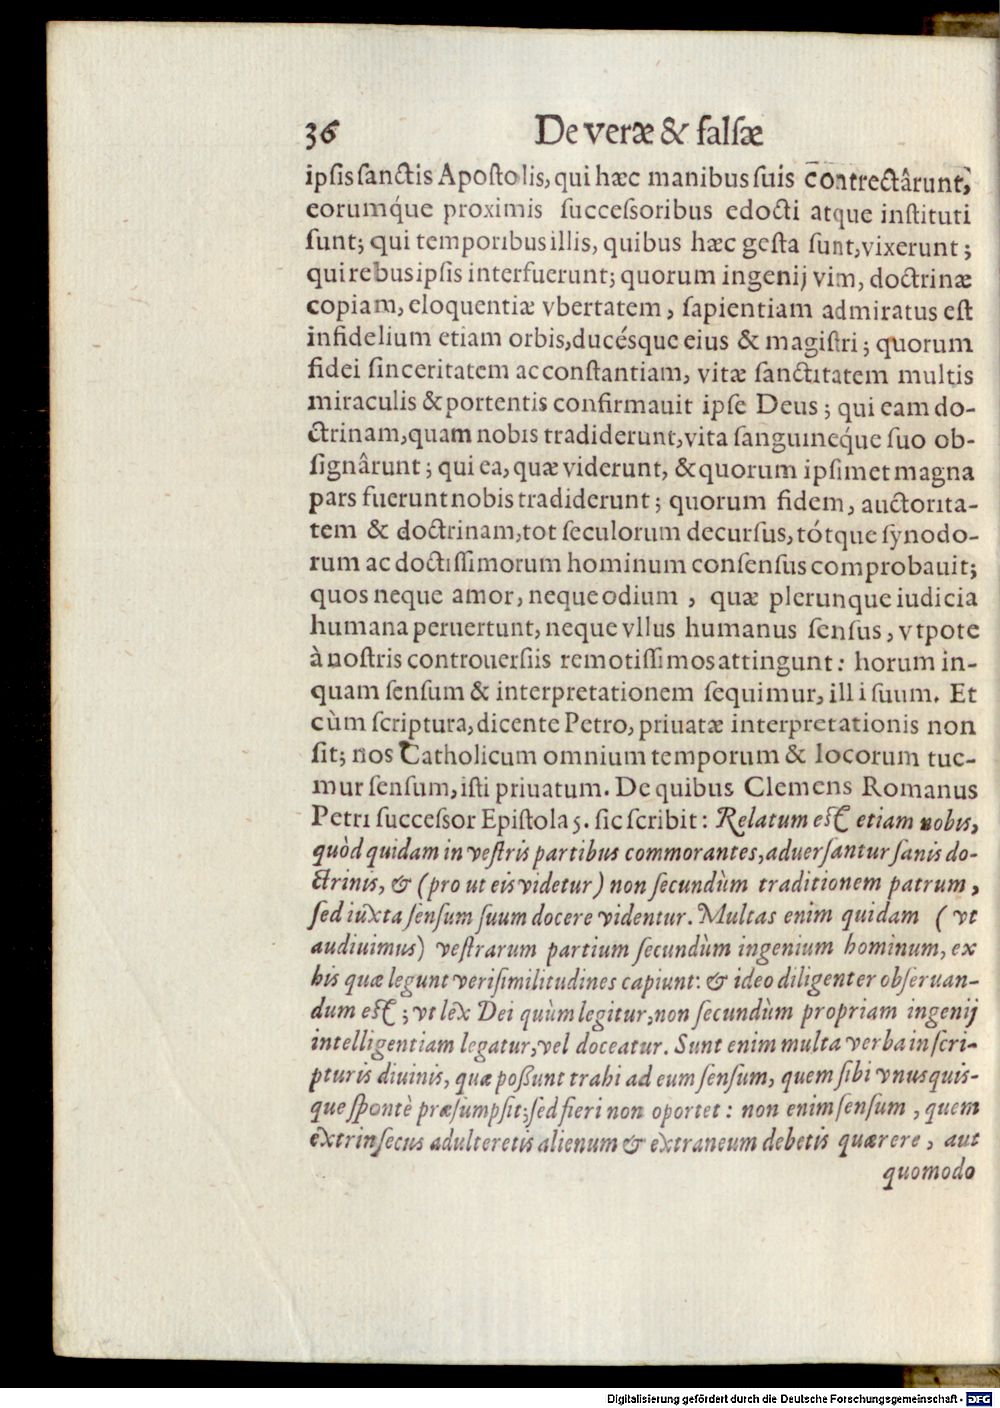 36 De veræ & falſæ
ipſis ſanctis Apoſtolis, qui hæc manibus ſuis contrectârunt,
eorumq́ue proximis ſucceſsoribus edocti atque inſtituti
ſunt; qui temporibus illis, quibus hæc geſta ſunt, vixerunt;
qui rebus ipſis interfuerunt; quorum ingenij vim, doctrinæ
copiam, eloquentiæ vbertatem, ſapientiam admiratus eſt
infidelium etiam orbis, ducésque eius & magiſtri; quorum
fidei ſinceritatem ac conſtantiam, vitæ ſanctitatem multis
miraculis & portentis confirmauit ipſe Deus; qui eam do-
ctrinam, quam nobis tradiderunt, vita ſanguineq́ue ſuo ob-
ſignârunt; qui ea, quæ viderunt, & quorum ipſimet magna
pars fuerunt nobis tradiderunt; quorum fidem, auctorita-
tem & doctrinam, tot ſeculorum decurſus, tótque ſynodo-
rum ac doctiſſimorum hominum conſenſus comprobauit;
quos neque amor, neque odium, quæ plerunque iudicia
humana peruertunt, neque vllus humanus ſenſus, vtpote
à noſtris controuerſiis remotiſſimos attingunt: horum in-
quam ſenſum & interpretationem ſequimur, illi ſuum. Et
cùm ſcriptura, dicente Petro, priuatæ interpretationis non
ſit; nos Catholicum omnium temporum & locorum tue-
mur ſenſum, iſti priuatum. De quibus Clemens Romanus
Petri ſucceſsor Epiſtola 5. ſic ſcribit: Relatum eſt etiam nobis,
quòd quidam in veſtris partibus commorantes, aduerſantur ſanis do-
ctrinis, & (pro ut eis videtur) non ſecundùm traditionem patrum,
ſed iuxta ſenſum ſuum docere videntur. Multas enim quidam (vt
audiuimus) veſtrarum partium ſecundùm ingenium hominum, ex
his quæ legunt veriſimilitudines capiunt: & ideo diligenter obſeruan-
dum eſt; vt lex Dei quùm legitur, non ſecundùm propriam ingenij
intelligentiam legatur, vel doceatur. Sunt enim multa verba in ſcri-
pturis diuinis, quæ poßunt trahi ad eum ſenſum, quem ſibi vnusquis-
que ſpontè præſumpſit; ſed fieri non oportet: non enim ſenſum, quem
extrinſecus adulteretis alienum & extraneum debetis quærere, aut
quomodo
Digitalisierung gefördert durch die Deutsche Forschungsgemeinschaft - DFG